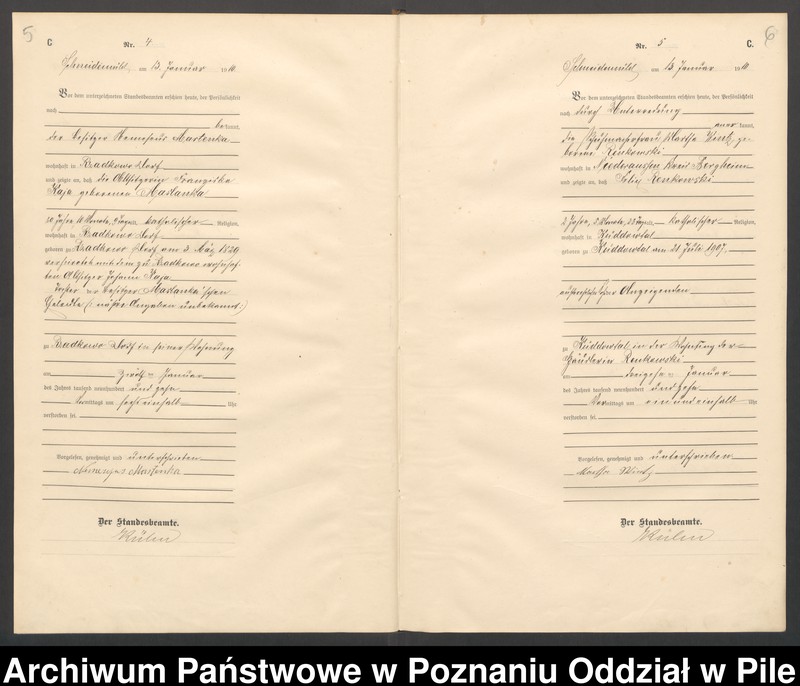 5
C
Nr. 4
Schneidemühl, am 13. Januar 1910
Vor dem unterzeichneten Standesbeamten erschien heute, der Persönlichkeit
nach
bekannt,
der Besitzer Maslanka
wohnhaft in Radkowo Dorf
und zeigte an, daß die Altsitzerin Franziska
Kaja geborene Maslanka
Jahre, Monate, katholischer Religion,
wohnhaft in Radkowo Dorf
geboren zu Radkowo Dorf am 3. März 1829
verheiratet mit dem zu Radkowo wohnhaf-
ten Altsitzer Johann Kaja
Tochter der Besitzer Maslanka'schen
Eheleute (: nähere Angaben unbekannt :)
zu Radkowo Dorf in seiner Wohnung
am zwölften Januar
des Jahres tausend neunhundert und zehn
Vormittags um sechseinhalb Uhr
verstorben sei.
Vorgelesen, genehmigt und unterschrieben
Maslanka
Der Standesbeamte.
Kühn
6
Nr. 5
C.
Schneidemühl, am 13. Januar 1910
Vor dem unterzeichneten Standesbeamten erschien heute, der Persönlichkeit
nach durch Unterredung
anerkannt,
die Martha ge-
borene Renkowski
wohnhaft in Niederaußem Kreis Bergheim
und zeigte an, daß Felix Renkowski
2 Jahre, 5 Monate, 23 Tage katholischer Religion,
wohnhaft in Küddowtal
geboren zu Küddowtal am 21. Juli 1907,
der Anzeigenden
zu Küddowtal in der Wohnung der
Händlerin Renkowski
am dreizehnten Januar
des Jahres tausend neunhundert und zehn
Vormittags um ein und einhalb Uhr
verstorben sei.
Vorgelesen, genehmigt und unterschrieben
Martha
Der Standesbeamte.
Kühn
Archiwum Państwowe w Poznaniu Oddział w Pile